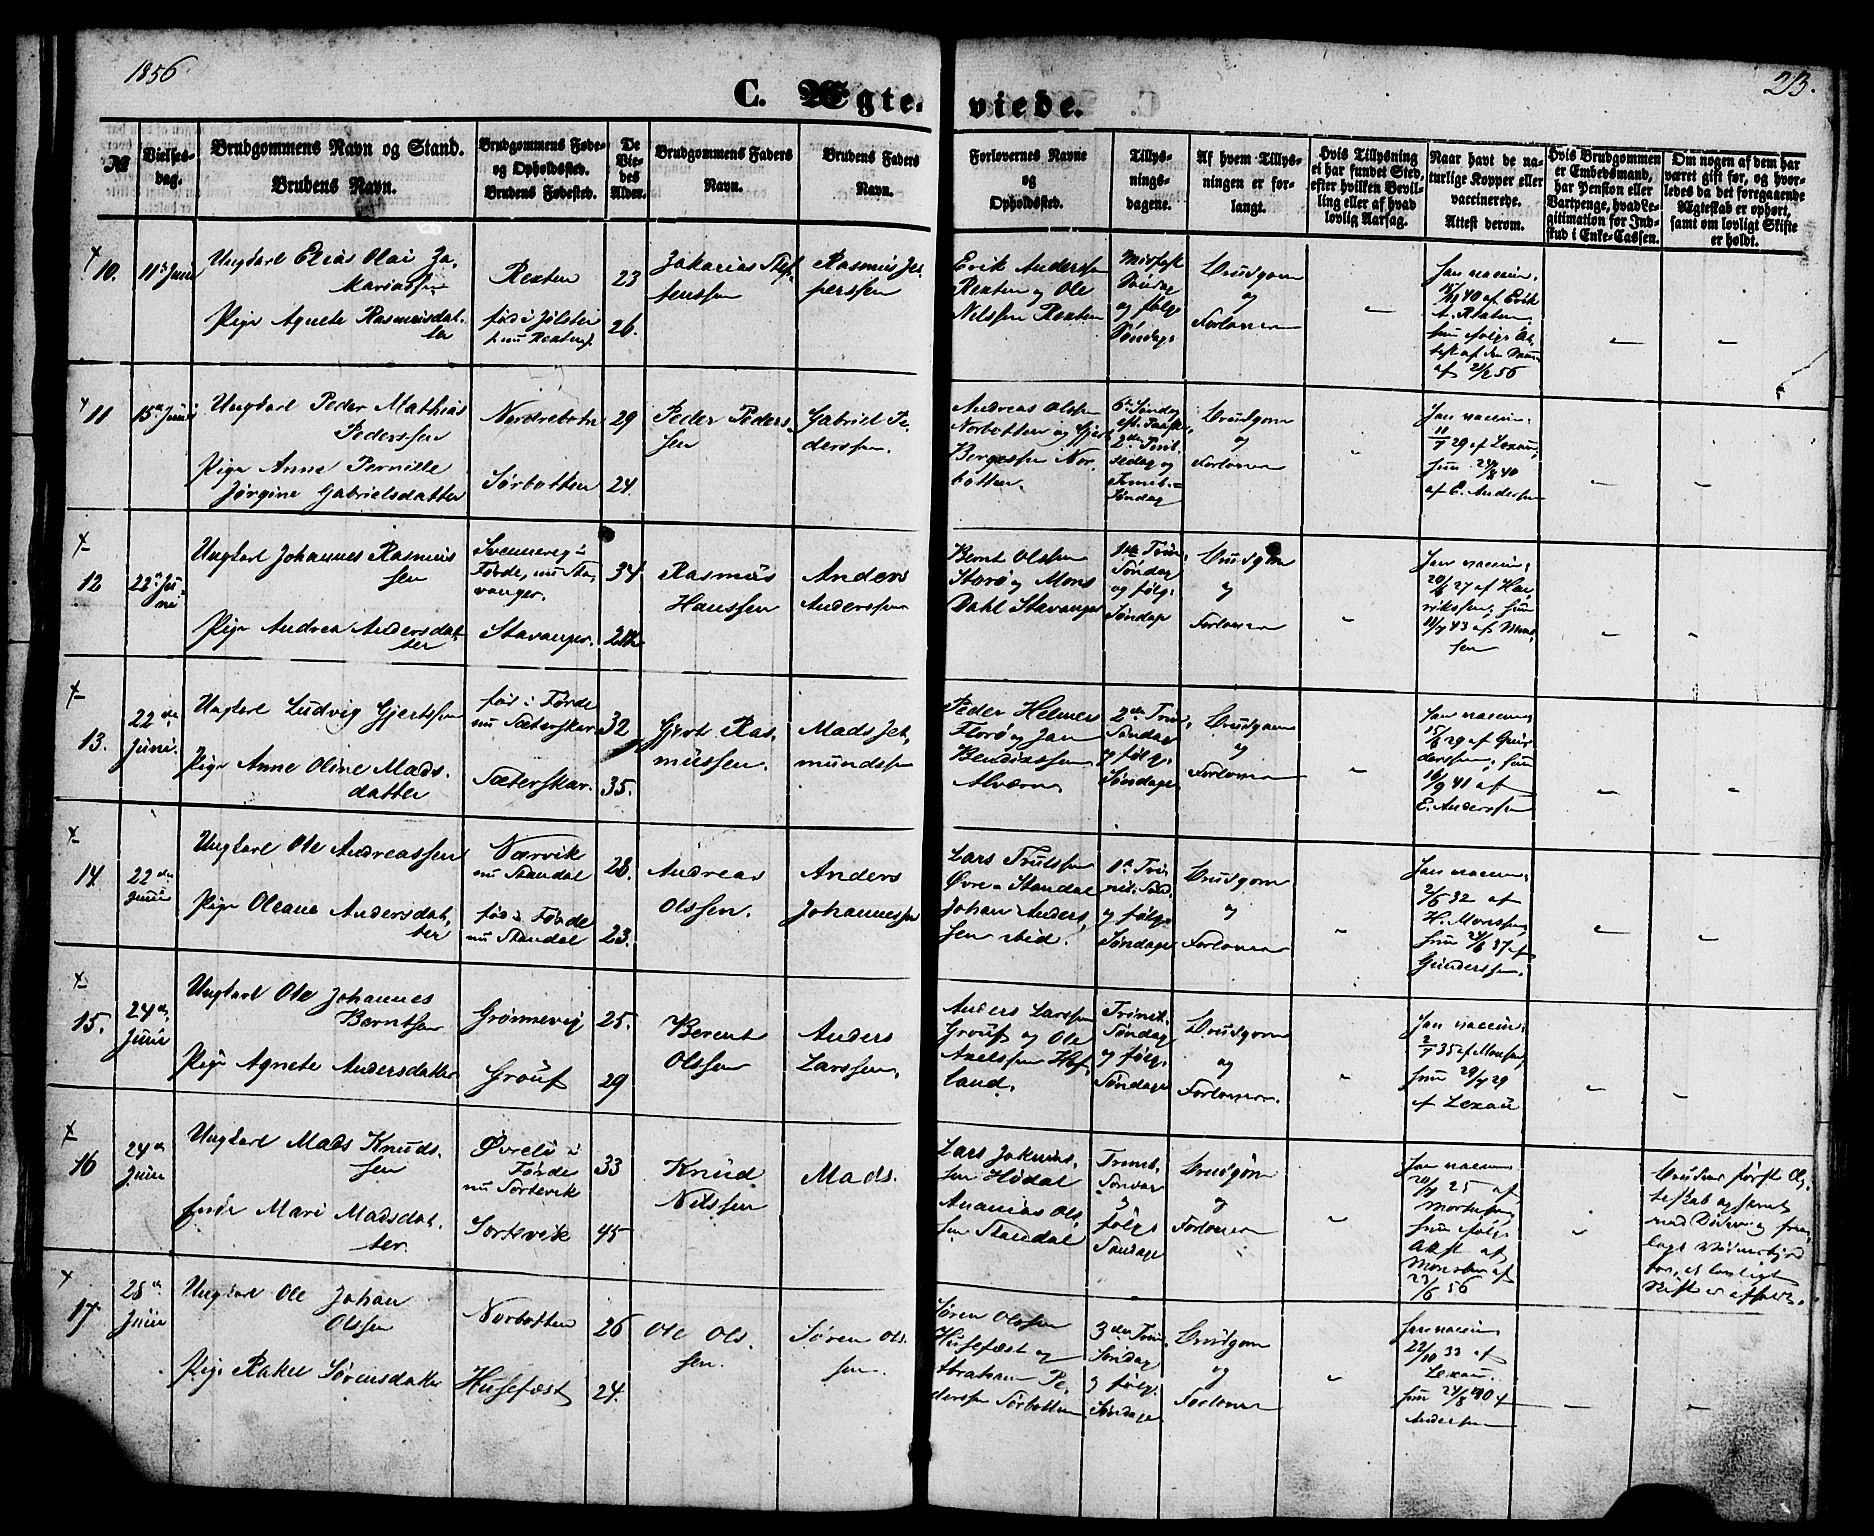 1856
23.
C. Ægte-
viede.
No
Vielses-
dag.
Brudgommens Navn og Stand.
Brudens Navn.
Brudgommens Føde-
og Opholdssted.
Brudens Fødested.
De
Vie-
des
Alder.
Brudgommens Faders
Navn.
Brudens Faders
Navn.
Forlovernes Navne
og
Opholdssted.
Tillys-
nings-
dagene.
Af hvem Tillys-
ningen er for-
langt.
Hvis Tillysning
ei har fundet Sted,
efter hvilken Bevil-
ling eller af hvad
lovlig Aarsag.
Naar havt de na-
turlige Kopper eller
vaccinerede.
Attest derom.
Hvis Brudgommen
er Embedsmand,
har Pension eller
Vartpenge, hvad Le-
gitimation for Ind-
skud i Enke-Cassen.
Om nogen af dem har
været gift før, og hvor-
ledes da det foregaaende
Ægteskab er ophørt,
samt om lovligt Skifte
er holdt.
10.
11te Juni
Ungkarl Elias Olai Za-
kariassen
Pige Agnete Rasmusdat-
ter
Rexten
fød i Jølster
23
26.
Zakarias Stef-
fenssen
Rasmus Jes-
perssen
Erik Anderssen
Rexten og Ole
Nilssen Rexten
Søndag
og følg.
Søndage
Brudgom
og
Forlovern
11
15de Juni
Ungkarl Peder Mathias
Pederssen
Pige Anne Pernille
Jørgine Gabrielsdatter
Nordrebotn
Sørbotten
29
24.
Peder Peders-
sen
Gabriel Pe-
derssen.
Andreas Olssen
Norbotten og Gjert
Bergessen Nor-
botten.
6te Søndag
eft. Paaske
2den Pint-
sedag og
Trinit.-
Søndag
Brudgom
og
Forlovern
11/7 29 af Lexau,
hun 24/8 40
af E. Anderssen
12
22de Ju-
ni
Ungkarl Johannes Rasmus-
sen
Pige Andrea Andersdat-
ter
Svennevig i
Førde, nu Sta-
vanger.
Stavanger.
34
Rasmus
Hanssen
Anders
Anderssen
Bernt Olssen
Storø og Mons
Dahl Stavanger
Søndag
og følg.
Søndage
Brudgom
og
Forlovern
13.
22de
Juni.
Ungkarl Ludvig Gjertssen
Pige Anne Oline Mads-
datter
fød i Førde
nu Sæterskar
Sæterskar.
32
35.
Gjert Ras-
mussen.
Mads Jet-
mundssen
Peder Helmer
Florø og Jan
Bendixssen
Alværn
2den Trin.
Søndag
og følg.
Søndage
Brudgom
og
Forlovern
16/9 41 af
E. Anderssen
14.
22de
Juni
Ungkarl Ole Andreassen
Pige Oleane Andersdat-
ter
Nærvik
nu Standal
fød i Førde
nu Standal
28.
23.
Andreas
Olssen.
Anders
Johannessen
Lars Trulssen
Øvre-Standal
Johan Anders-
sen ibid.
1ste Tri-
nit. Sønd.
og følg.
Søndage
Brudgom
og
Forlovern
2/6 32 af
H. Monssen,
hun 24/6 37 af
Gunderssen.
15.
24de
Juni
Ungkarl Ole Johannes
Berntsen
Pige Agnete Andersdatter
Grønnevig
Grouf
25.
29
Berent
Olssen
Anders
Larssen.
Anders Larssen
Grouf og Ole
Axelssen Hof-
land.
Trinit.
Søndag
og følg.
Søndage
Brudgom
og
Forlovern.
2/7 35 af Monssen,
hun 29/7 29
af Lexau
16
24de
Juni
Ungkarl Mads Knuds-
sen
Enke Mari Madsdat-
ter.
Øvrelie i
Førde
nu Sortevik
Sortevik
33
45
Knud
Nilssen
Mads.
Lars Jakobs-
sen Hødal
Ananias Ols-
sen Standal
Trinit.
Søndag
og
følg.
Søndage
Brudgom
og
Forlovern
hun følg.
Attest af
23/6 56
17
28de
Juni
Ungkarl Ole Johan
Olssen
Pige Rakel Sørensdatter
Norbotten
Husefæst
26
24.
Ole Ols-
sen.
Søren Ols-
sen
Søren Olssen
Husefæst og
Abraham Pe-
derssen Sørbotten
3die Trin.
Søndag
og følg.
Søndage
Brudgom
og
Forlovern
22/10 33 af
Lexau.
hun 24/8 40 af
Anderssen